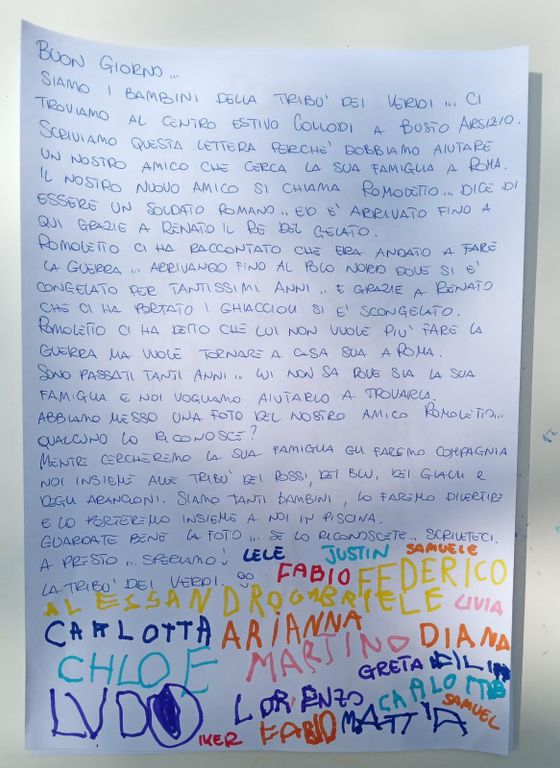 BUON GIORNO...
SIAMO I BAMBINI DELLA TRIBU' DEI VERDI... CI
TROVIAMO AL CENTRO ESTIVO COLLODI A BUSTO ARSIZIO.
SCRIVIAMO QUESTA LETTERA PERCHE' DOBBIAMO AIUTARE
UN NOSTRO AMICO CHE CERCA LA SUA FAMIGLIA A ROMA.
IL NOSTRO NUOVO AMICO SI CHIAMA ROMOLETTO... DICE DI
ESSERE UN SOLDATO ROMANO.. ED E' ARRIVATO FINO A
QUI GRAZIE A RENATO IL RE DEL GELATO.
ROMOLETTO CI HA RACCONTATO CHE ERA ANDATO A FARE
LA GUERRA... ARRIVANDO FINO AL POLO NORD DOVE SI E'
CONGELATO PER TANTISSIMI ANNI.. E GRAZIE A RENATO
CHE CI HA PORTATO I GHIACCIOLI SI E' SCONGELATO.
ROMOLETTO CI HA DETTO CHE LUI NON VUOLE PIU' FARE LA
GUERRA MA VUOLE TORNARE A CASA SUA A ROMA.
SONO PASSATI TANTI ANNI.. LUI NON SA DOVE SIA LA SUA
FAMIGLIA E NOI VOGLIAMO AIUTARLO A TROVARLA.
ABBIAMO MESSO UNA FOTO DEL NOSTRO AMICO ROMOLETTO...
QUALCUNO LO RICONOSCE?
MENTRE CERCHEREMO LA SUA FAMIGLIA GLI FAREMO COMPAGNIA
NOI INSIEME ALLE TRIBU' DEI ROSSI, DEI BLU, DEI GIALLI E
DEGLI ARANCIONI. SIAMO TANTI BAMBINI, LO FAREMO DIVERTIRE
E LO PORTEREMO INSIEME A NOI IN PISCINA.
GUARDATE BENE LA FOTO... SE LO RICONOSCETE... SCRIVETECI.
A PRESTO... SPERIAMO! LELE JUSTIN SAMUELE
LA TRIBU' DEI VERDI. FABIO FEDERICO
ALESSANDRO GABRIELE LIVIA
CARLOTTA ARIANNA DIANA
CHLOE MARTINO GRETA
LUDO LORENZO CARLOTTA SAMUEL
IKER FABIO MATTIA